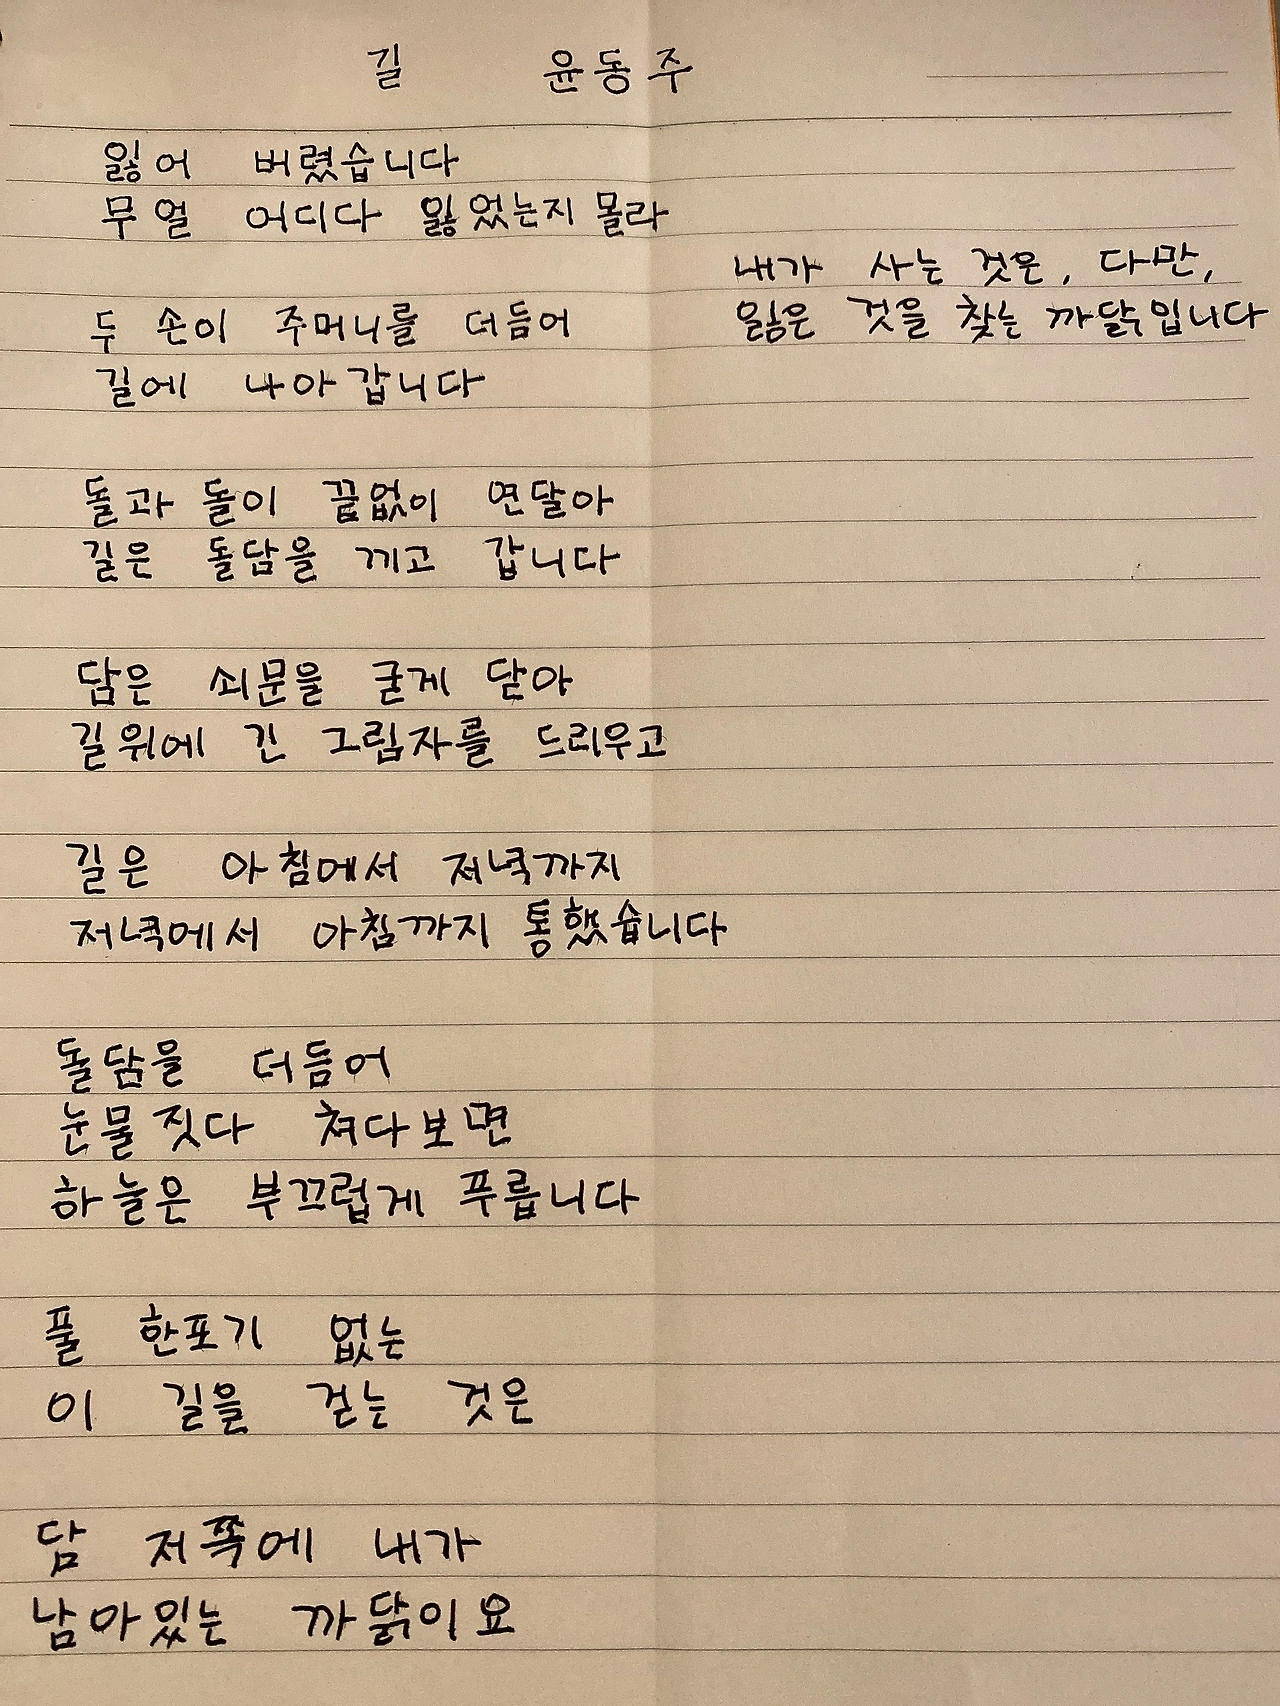 길 윤동주
잃어 버렸습니다
무얼 어디다 잃었는지 몰라
두 손이 주머니를 더듬어
길에 나아갑니다
돌과 돌이 끝없이 연달아
길은 돌담을 끼고 갑니다
담은 쇠문을 굳게 닫아
길위에 긴 그림자를 드리우고
길은 아침에서 저녁까지
저녁에서 아침까지 통했습니다
돌담을 더듬어
눈물짓다 쳐다보면
하늘은 부끄럽게 푸릅니다
풀 한포기 없는
이 길을 걷는 것은
담 저쪽에 내가
남아있는 까닭이요
내가 사는 것은, 다만,
잃은 것을 찾는 까닭입니다